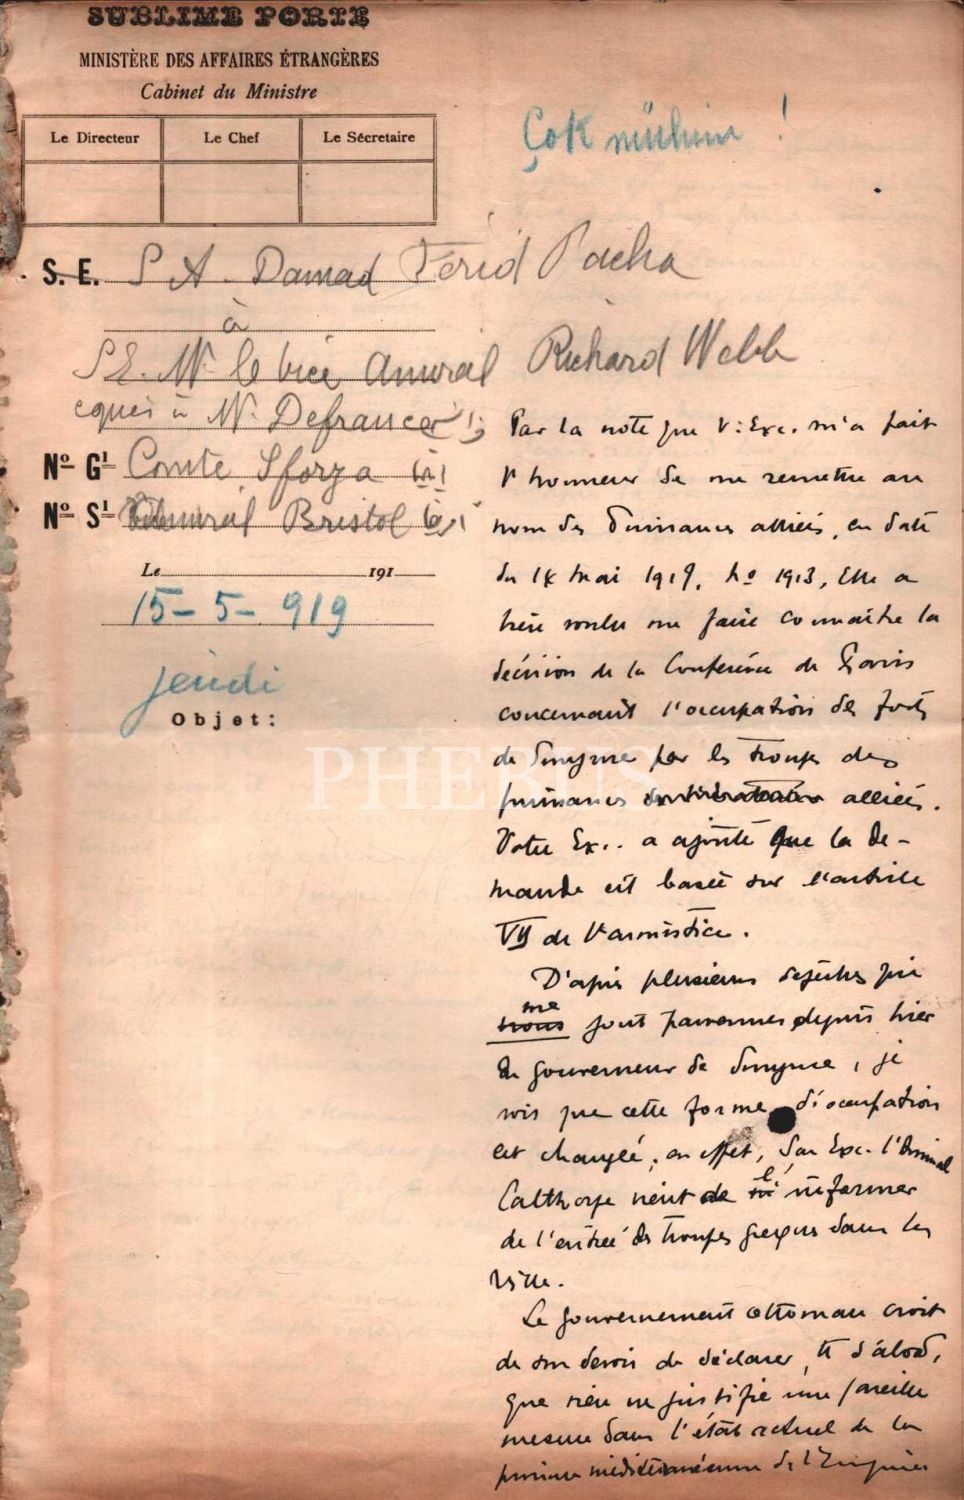 SUBLIME PORTE
MINISTÈRE DES AFFAIRES ÉTRANGÈRES
Cabinet du Ministre
Le Directeur
Le Chef
Le Sécretaire
Çok mühim !
S. E. S A. Damad Férid Pacha
à
S. E. Mr. le vice Amiral Richard Webb
à Mr. Defrance
Nº Gl Comte Sforza
Nº Sl Amiral Bristol
Le 191
15-5-919
jeudi
Objet:
Par la note que V. Exc. m'a fait
l'honneur de me remettre au
nom des Puissances alliées, en date
du 14 mai 1919, Nº 1913, Elle a
bien voulu me faire connaître la
décision de la Conférence de Paris
concernant l'occupation des forts
de Smyrne par les troupes des
puissances alliées.
Votre Exc. a ajouté que la de-
mande est basée sur l'article
VII de l'armistice.
D'après plusieurs dépêches qui
me
nous sont parvenues depuis hier
du gouverneur de Smyrne, je
vois que cette forme d'occupation
est changée; en effet, Son Exc. l'Amiral
Calthorpe vient de l'informer
de l'entrée des troupes grecques dans la
ville.
Le gouvernement ottoman croit
de son devoir de déclarer, tt d'abord,
que rien ne justifie une pareille
mesure dans l'état actuel de la
province méditerranéenne de l'Empire
PHEBUS